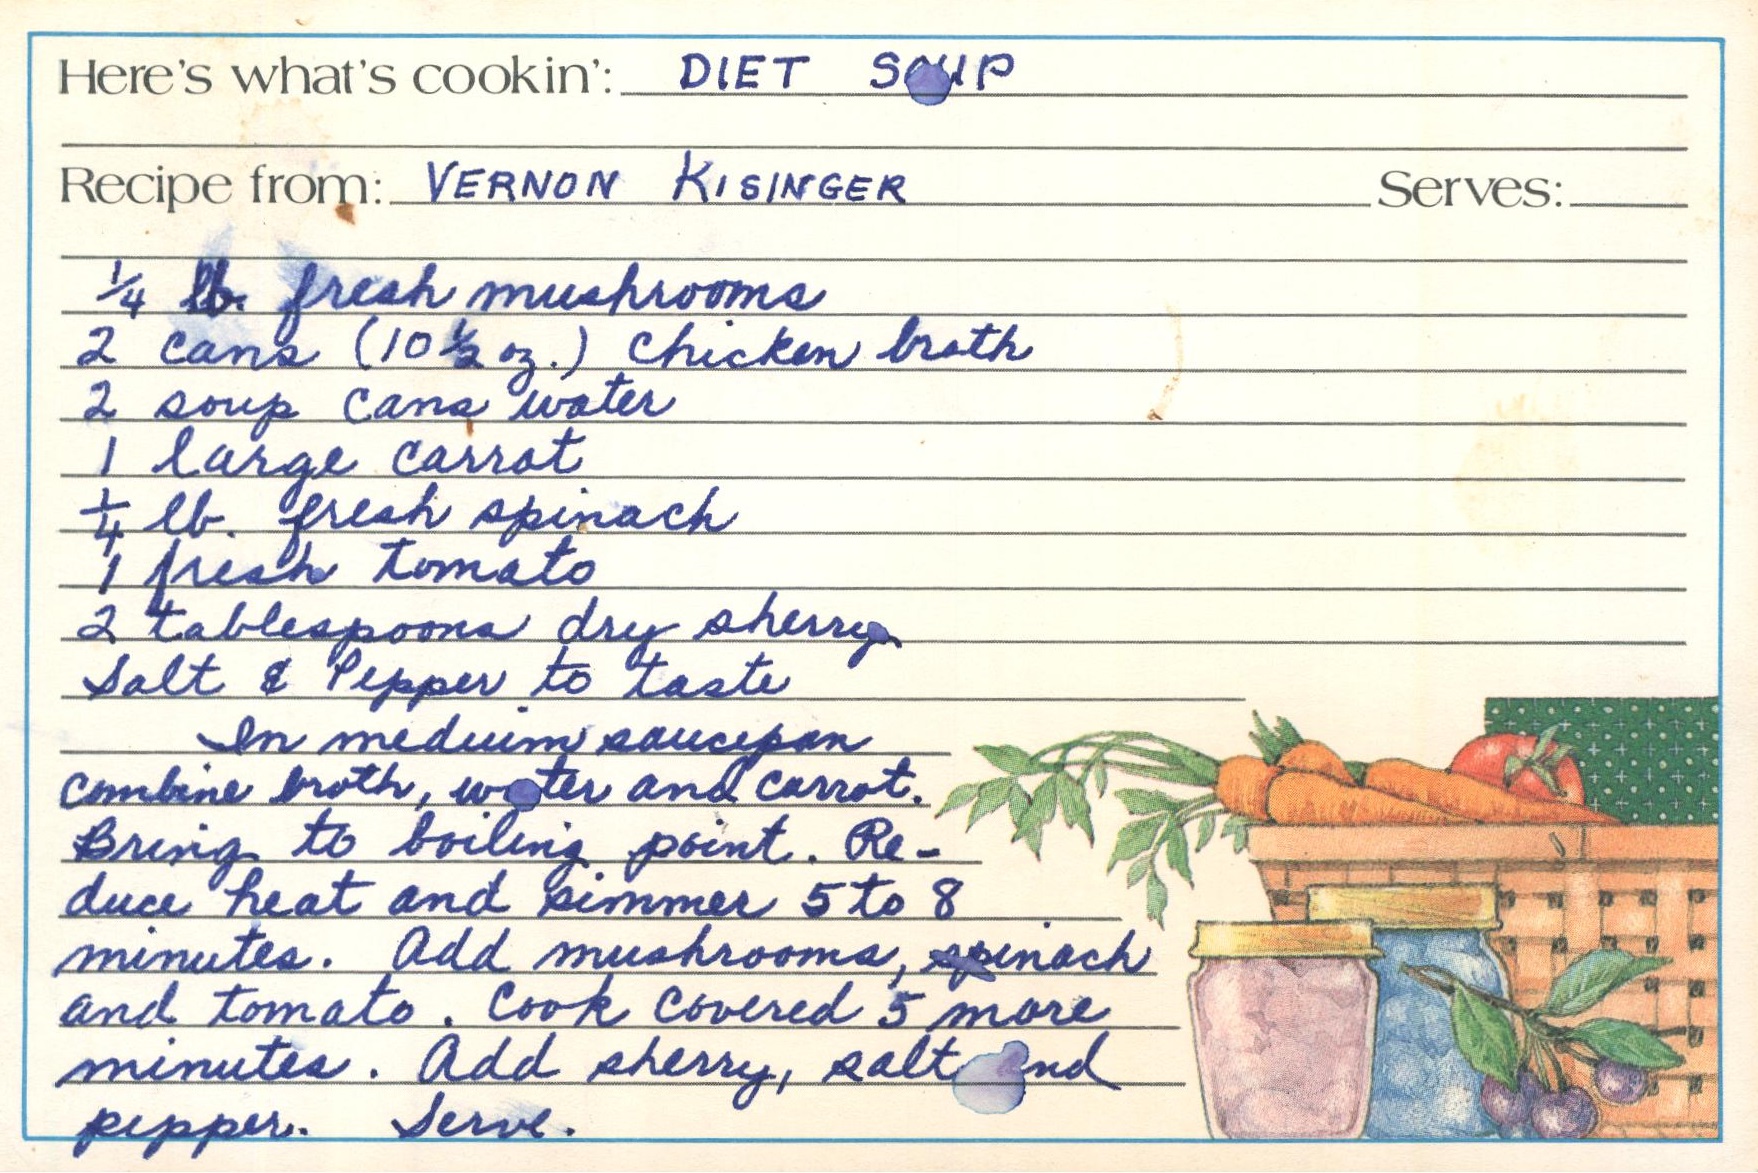 Here's what's cookin': DIET SOUP
Recipe from: VERNON KISINGER Serves:
1/4 lb. fresh mushrooms
2 cans (10 1/2 oz.) chicken broth
2 soup cans water
1 large carrot
1/4 lb. fresh spinach
1 fresh tomato
2 tablespoons dry sherry
Salt & Pepper to taste
In medium saucepan
combine broth, water and carrot.
Bring to boiling point. Re-
duce heat and simmer 5 to 8
minutes. Add mushrooms, spinach
and tomato. Cook covered 5 more
minutes. Add sherry, salt and
pepper. Serve.